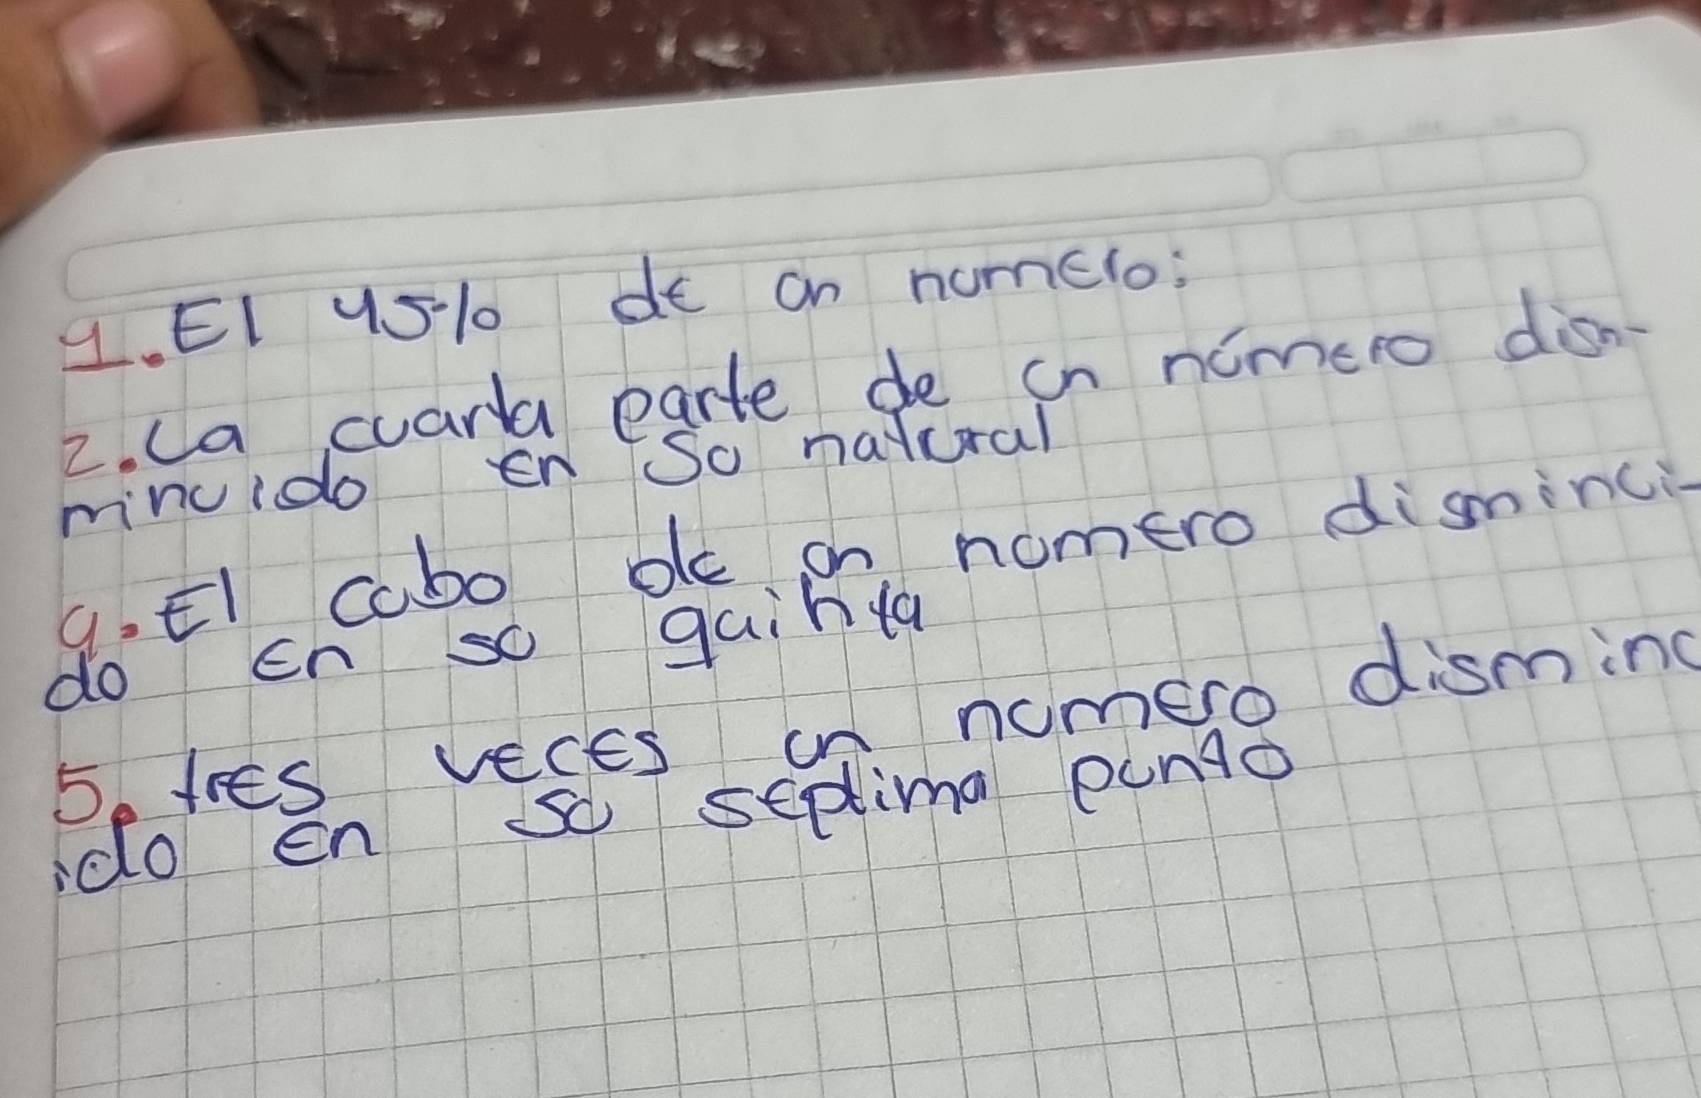 1. El 45% de un numero:
2. La cuarta parte de un número dism-
minuido en su natural
4. El cubo de un numero disminui-
do en su quinta
5. tres veces un numero disminu
ido en su septima punto